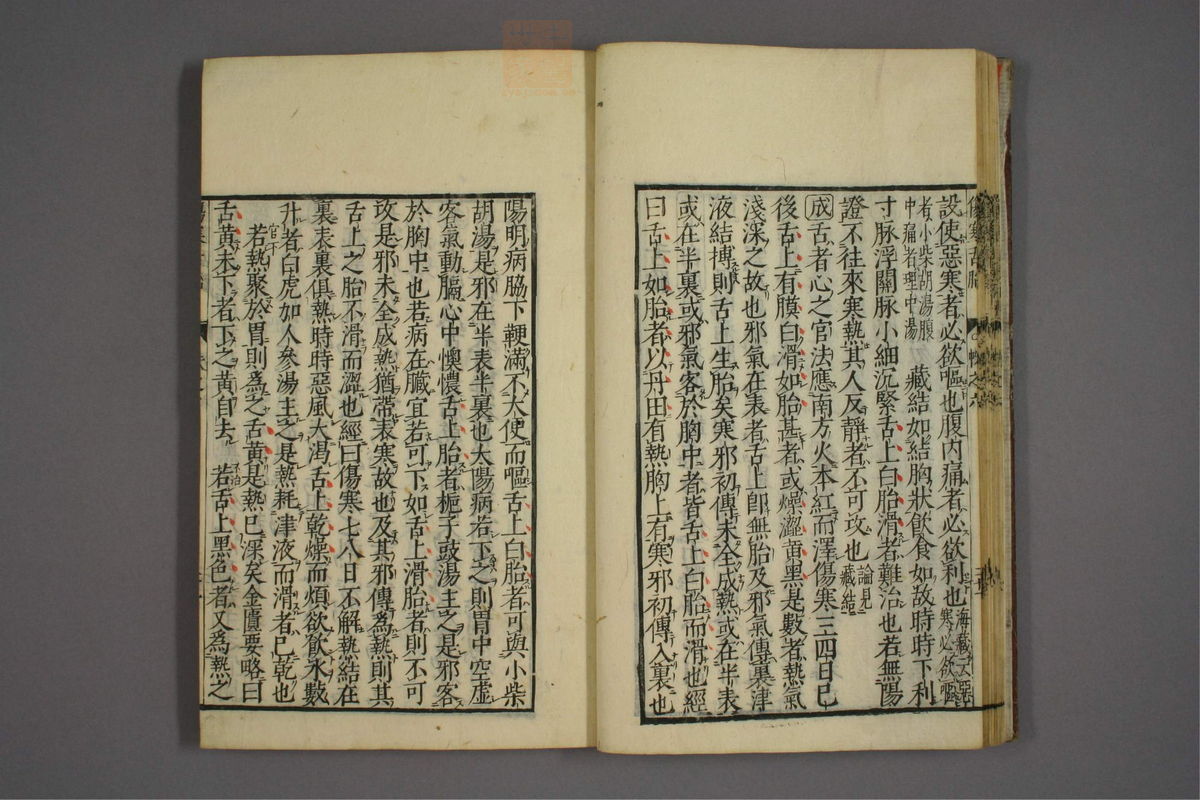 設使惡寒者必欲嘔也腹內痛者必欲利也海藏云惡
寒必欲嘔
者小柴胡湯腹
中痛者理中湯
藏結如結胸狀飲食如故時時下利
寸脉浮關脉小細沉緊舌上白胎滑者難治也若無陽
證不往來寒熱其人反靜者不可攻也論見
藏結
成舌者心之官法應南方火本紅而澤傷寒三四日已
後舌上有膜白滑如胎甚者或燥澀黃黑是數者熱氣
淺深之故也邪氣在表者舌上即無胎及邪氣傳裏津
液結搏則舌上生胎矣寒邪初傳未全成熱或在半表
或在半裏或邪氣客於胸中者皆舌上白胎而滑也經
曰舌上如胎者以丹田有熱胸上有寒邪初傳入裏也
陽明病脇下鞕滿不大便而嘔舌上白胎者可與小柴
胡湯是邪在半表半裏也太陽病若下之則胃中空虛
客氣動膈心中懊憹舌上胎者梔子豉湯主之是邪客
於胸中也若病在臟宜若可下如舌上滑胎者則不可
攻是邪未全成熱猶帶表寒故也及其邪傳為熱則其
舌上之胎不滑而澀也經曰傷寒七八日不解熱結在
裏表裏俱熱時時惡風大渴舌上乾燥而煩欲飲水數
升者白虎加人參湯主之是熱耗津液而滑者已乾也
若熱聚於胃則為之舌黃是熱已深矣金匱要略曰
舌黃未下者下之黃自去 若舌上黑色者又為熱之